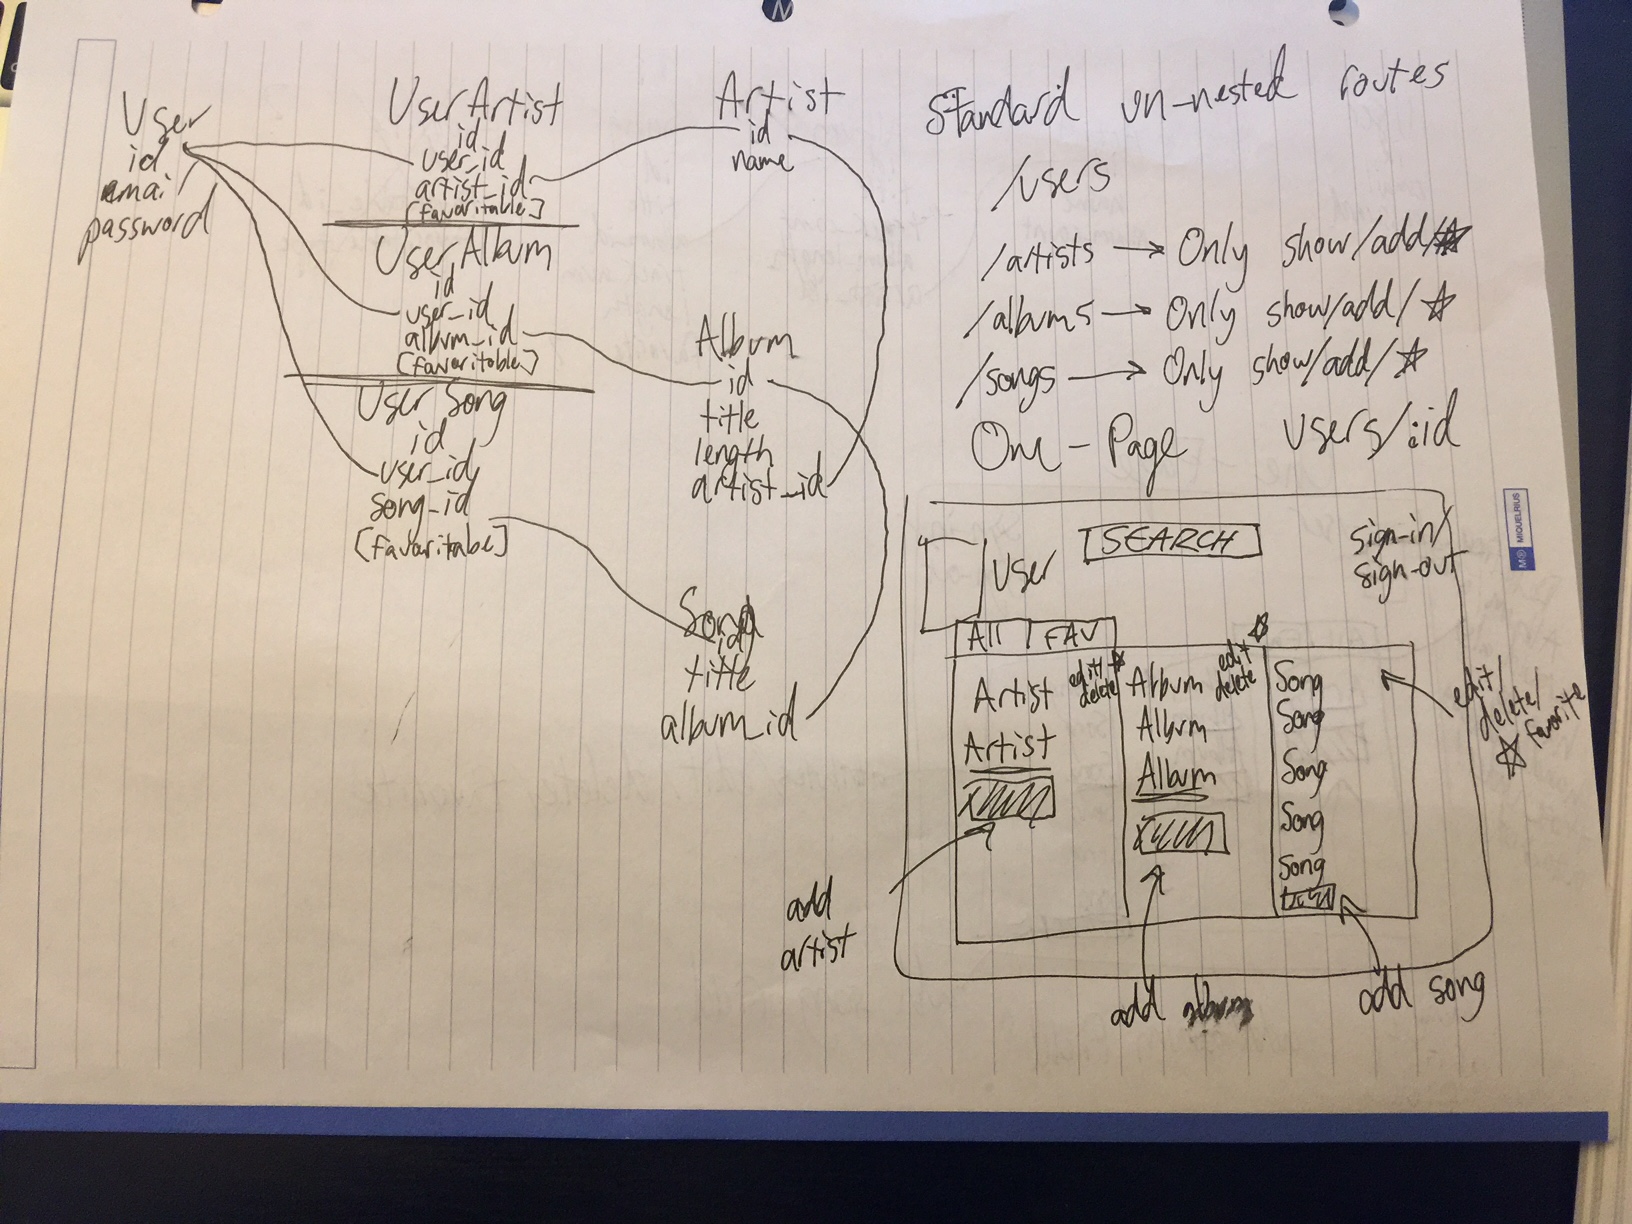 User
id
email
password
UserArtist
id
user_id
artist_id
[favoritable]
UserAlbum
id
user_id
album_id
[favoritable]
UserSong
id
user_id
song_id
[favoritable]
Artist
id
name
Album
id
title
length
artist_id
Song
id
title
album_id
Standard un-nested routes
/users
/artists → Only show/add/☆
/albums → Only show/add/☆
/songs → Only show/add/☆
One-Page users/:id
User
SEARCH
sign-in/
sign-out
All
FAV
Artist edit delete ☆
Artist
Artist
Album edit delete ☆
Album
Album
Song
Song
Song
Song
Song
add
artist
add
add song
edit/
delete/
☆ favorite
M® MIQUELRIUS